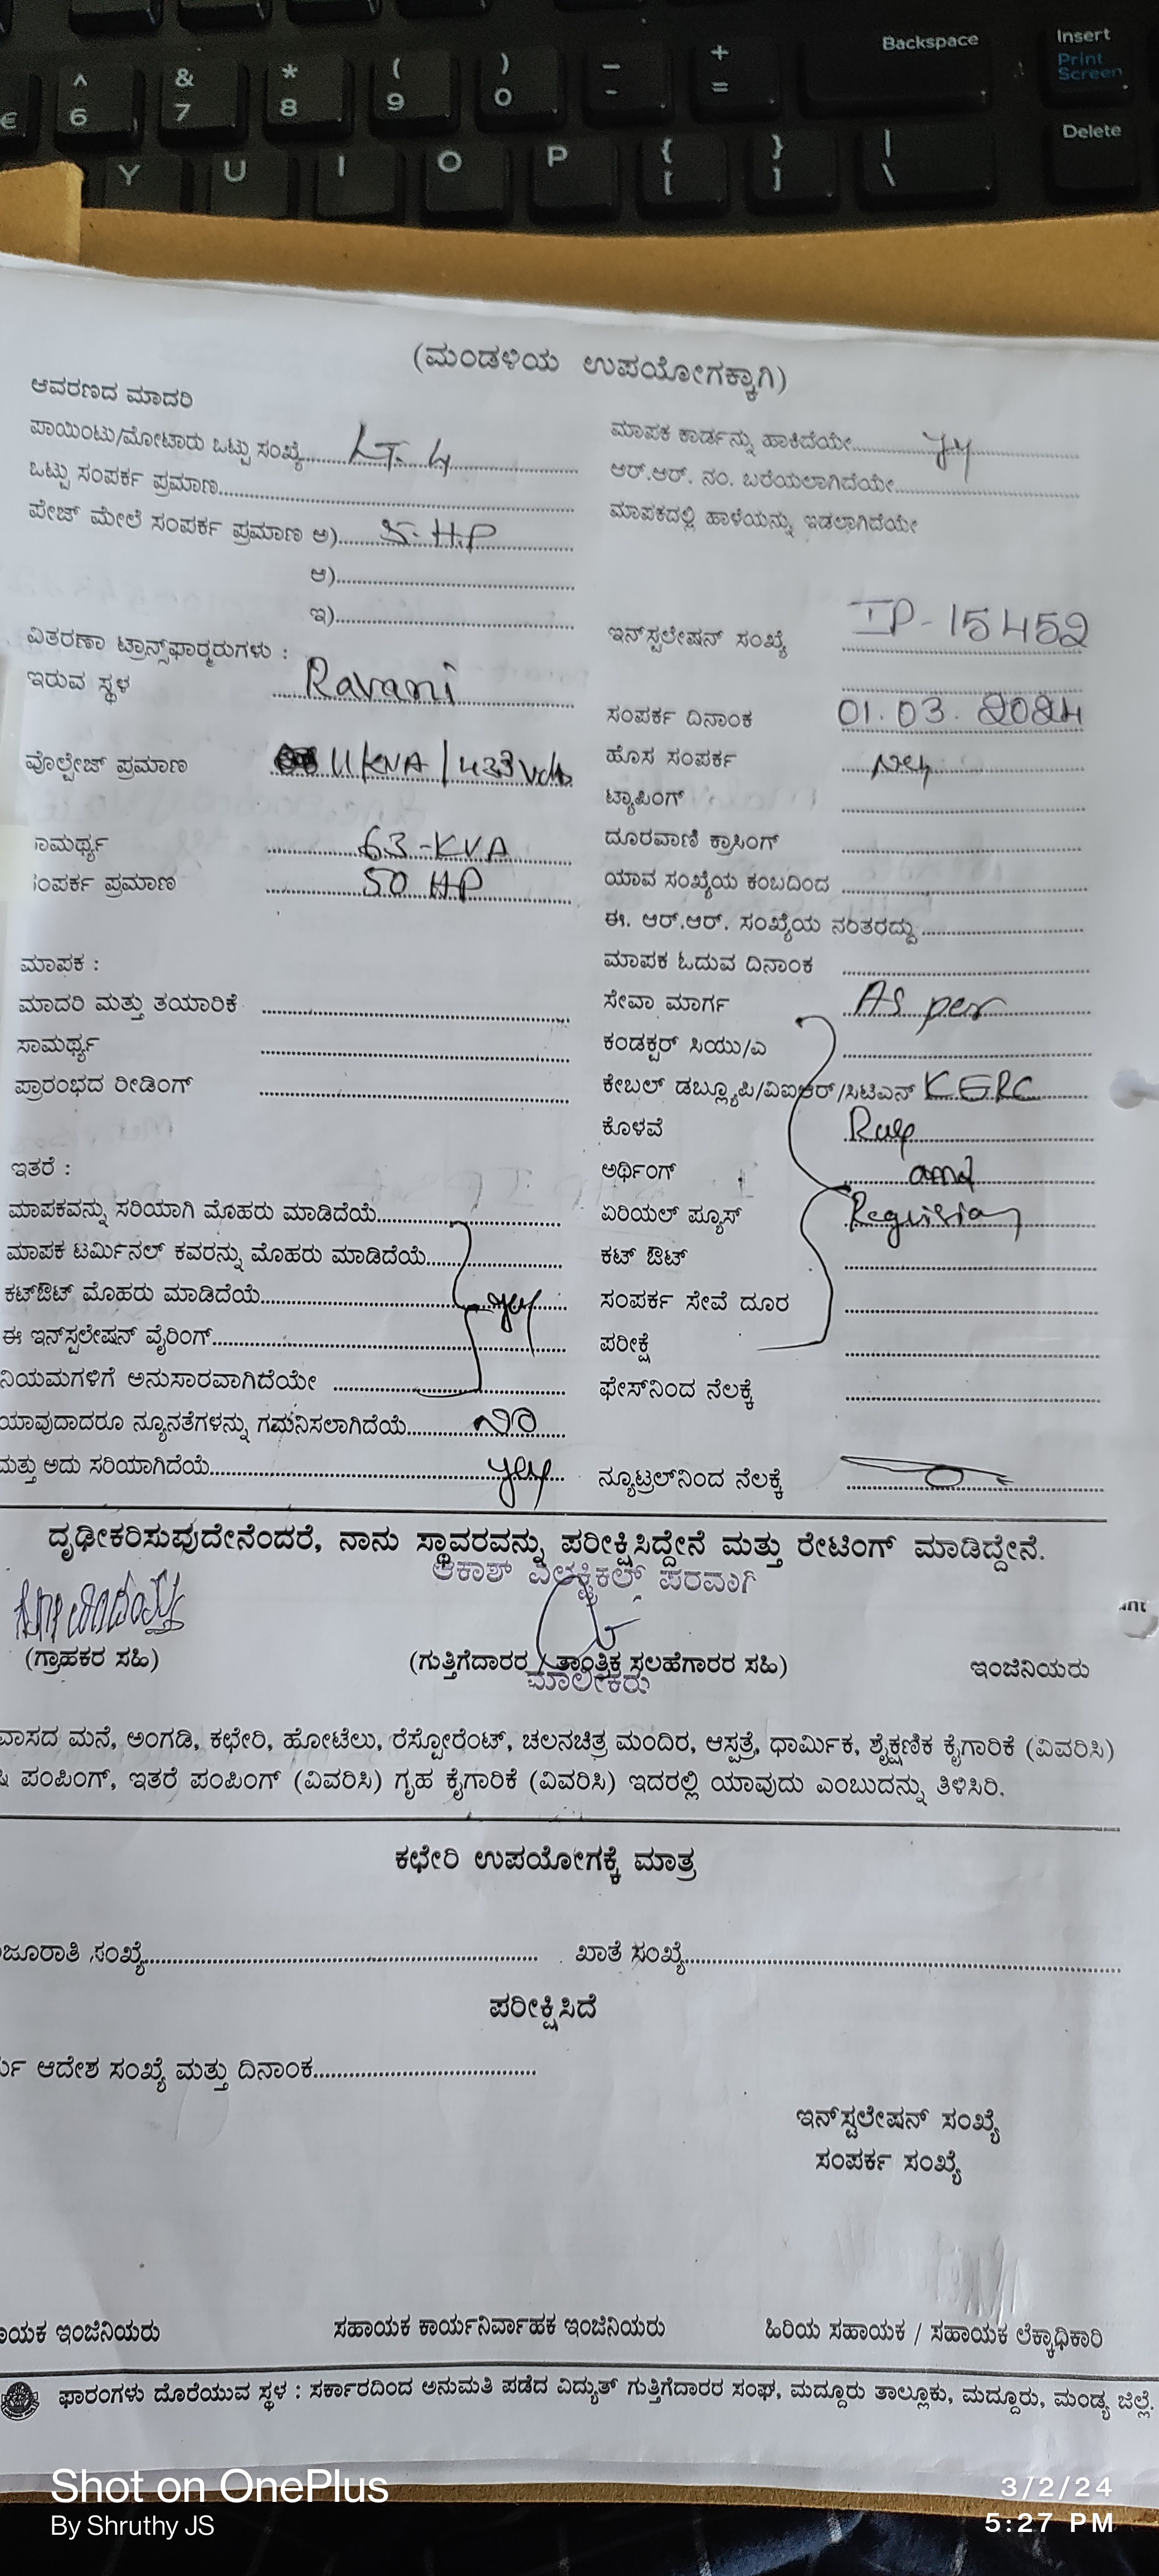 Backspace
Insert
Print
Screen
Delete
€ ^ 6 & 7 * 8 ( 9 ) 0 _ - + =
Y U I O P { [ } ] | \
(ಮಂಡಳಿಯ ಉಪಯೋಗಕ್ಕಾಗಿ)
ಆವರಣದ ಮಾದರಿ
ಪಾಯಿಂಟು/ಮೋಟಾರು ಒಟ್ಟು ಸಂಖ್ಯೆ LT. 4
ಒಟ್ಟು ಸಂಪರ್ಕ ಪ್ರಮಾಣ
ಪೇಜ್ ಮೇಲೆ ಸಂಪರ್ಕ ಪ್ರಮಾಣ ಅ) 5-H.P
ಆ)
ಇ)
ವಿತರಣಾ ಟ್ರಾನ್ಸ್‌ಫಾರ್‍ಮರುಗಳು :
ಇರುವ ಸ್ಥಳ Ravani
ವೊಲ್ಟೇಜ್ ಪ್ರಮಾಣ 11/KVA / 433 Volt
ಾಮರ್ಥ್ಯ 63-KVA
ಂಪರ್ಕ ಪ್ರಮಾಣ 50 HP
ಮಾಪಕ :
ಮಾದರಿ ಮತ್ತು ತಯಾರಿಕೆ
ಸಾಮರ್ಥ್ಯ
ಪ್ರಾರಂಭದ ರೀಡಿಂಗ್
ಇತರೆ :
ಮಾಪಕವನ್ನು ಸರಿಯಾಗಿ ಮೊಹರು ಮಾಡಿದೆಯೆ
ಮಾಪಕ ಟರ್ಮಿನಲ್ ಕವರನ್ನು ಮೊಹರು ಮಾಡಿದೆಯೆ
ಕಟ್‌ಔಟ್ ಮೊಹರು ಮಾಡಿದೆಯೆ yes
ಈ ಇನ್‌ಸ್ಟಲೇಷನ್ ವೈರಿಂಗ್
ನಿಯಮಗಳಿಗೆ ಅನುಸಾರವಾಗಿದೆಯೇ
ಯಾವುದಾದರೂ ನ್ಯೂನತೆಗಳನ್ನು ಗಮನಿಸಲಾಗಿದೆಯೆ NO
ಮತ್ತು ಅದು ಸರಿಯಾಗಿದೆಯೆ yes
ಮಾಪಕ ಕಾರ್ಡನ್ನು ಹಾಕಿದೆಯೇ
ಆರ್.ಆರ್. ನಂ. ಬರೆಯಲಾಗಿದೆಯೇ
ಮಾಪಕದಲ್ಲಿ ಹಾಳೆಯನ್ನು ಇಡಲಾಗಿದೆಯೇ
ಇನ್‌ಸ್ಟಲೇಷನ್ ಸಂಖ್ಯೆ IP-15452
ಸಂಪರ್ಕ ದಿನಾಂಕ 01.03.2024
ಹೊಸ ಸಂಪರ್ಕ
ಟ್ಯಾಪಿಂಗ್
ದೂರವಾಣಿ ಕ್ರಾಸಿಂಗ್
ಯಾವ ಸಂಖ್ಯೆಯ ಕಂಬದಿಂದ
ಈ. ಆರ್.ಆರ್. ಸಂಖ್ಯೆಯ ನಂತರದ್ದು
ಮಾಪಕ ಓದುವ ದಿನಾಂಕ
ಸೇವಾ ಮಾರ್ಗ As per
ಕಂಡಕ್ಟರ್ ಸಿಯು/ಎ
ಕೇಬಲ್ ಡಬ್ಲ್ಯೂಪಿ/ವಿಐಆರ್/ಸಿಟಿಎನ್ KERC
ಕೊಳವೆ Rule
ಅರ್ಥಿಂಗ್ and
ಏರಿಯಲ್ ಪ್ಯೂಸ್
ಕಟ್ ಔಟ್
ಸಂಪರ್ಕ ಸೇವೆ ದೂರ
ಪರೀಕ್ಷೆ
ಫೇಸ್‌ನಿಂದ ನೆಲಕ್ಕೆ
ನ್ಯೂಟ್ರಲ್‌ನಿಂದ ನೆಲಕ್ಕೆ
ದೃಢೀಕರಿಸುವುದೇನೆಂದರೆ, ನಾನು ಸ್ಥಾವರವನ್ನು ಪರೀಕ್ಷಿಸಿದ್ದೇನೆ ಮತ್ತು ರೇಟಿಂಗ್ ಮಾಡಿದ್ದೇನೆ.
ಆಕಾಶ್ ಎಲೆಕ್ಟ್ರಿಕಲ್ಸ್ ಪರವಾಗಿ
(ಗ್ರಾಹಕರ ಸಹಿ) (ಗುತ್ತಿಗೆದಾರರ / ತಾಂತ್ರಿಕ ಸಲಹೆಗಾರರ ಸಹಿ) ಇಂಜಿನಿಯರು
ಮಾಲೀಕರು
ವಾಸದ ಮನೆ, ಅಂಗಡಿ, ಕಛೇರಿ, ಹೋಟೆಲು, ರೆಸ್ಟೋರೆಂಟ್, ಚಲನಚಿತ್ರ ಮಂದಿರ, ಆಸ್ಪತ್ರೆ, ಧಾರ್ಮಿಕ, ಶೈಕ್ಷಣಿಕ ಕೈಗಾರಿಕೆ (ವಿವರಿಸಿ)
ಪಂಪಿಂಗ್, ಇತರೆ ಪಂಪಿಂಗ್ (ವಿವರಿಸಿ) ಗೃಹ ಕೈಗಾರಿಕೆ (ವಿವರಿಸಿ) ಇದರಲ್ಲಿ ಯಾವುದು ಎಂಬುದನ್ನು ತಿಳಿಸಿರಿ.
ಕಛೇರಿ ಉಪಯೋಗಕ್ಕೆ ಮಾತ್ರ
ಜೂರಾತಿ ಸಂಖ್ಯೆ ಖಾತೆ ಸಂಖ್ಯೆ
ಪರೀಕ್ಷಿಸಿದೆ
ಆದೇಶ ಸಂಖ್ಯೆ ಮತ್ತು ದಿನಾಂಕ
ಇನ್‌ಸ್ಟಲೇಷನ್ ಸಂಖ್ಯೆ
ಸಂಪರ್ಕ ಸಂಖ್ಯೆ
ಾಯಕ ಇಂಜಿನಿಯರು ಸಹಾಯಕ ಕಾರ್ಯನಿರ್ವಾಹಕ ಇಂಜಿನಿಯರು ಹಿರಿಯ ಸಹಾಯಕ / ಸಹಾಯಕ ಲೆಕ್ಕಾಧಿಕಾರಿ
ಫಾರಂಗಳು ದೊರೆಯುವ ಸ್ಥಳ : ಸರ್ಕಾರದಿಂದ ಅನುಮತಿ ಪಡೆದ ವಿದ್ಯುತ್ ಗುತ್ತಿಗೆದಾರರ ಸಂಘ, ಮದ್ದೂರು ತಾಲ್ಲೂಕು, ಮದ್ದೂರು, ಮಂಡ್ಯ ಜಿಲ್ಲೆ.
Shot on OnePlus
By Shruthy JS
3/2/24
5:27 PM